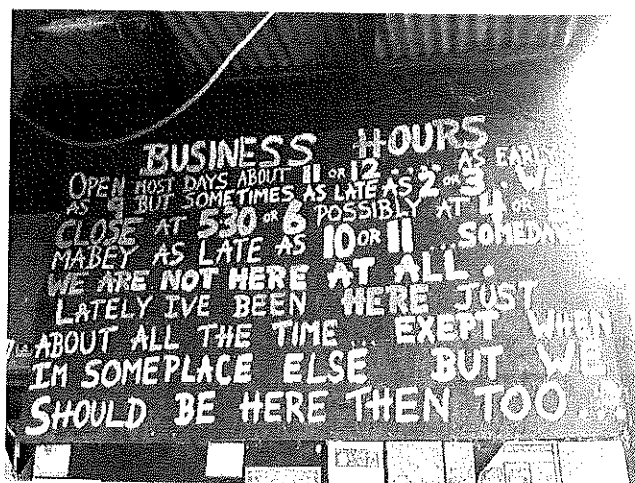 BUSINESS HOURS
OPEN MOST DAYS ABOUT 11 OR 12 ..... AS EARLY
AS BUT SOMETIMES AS LATE AS 2 OR 3 .. WE
CLOSE AT 530 OR 6 POSSIBLY AT 4 OR
MABEY AS LATE AS 10 OR 11 ... SOMEDAYS
WE ARE NOT HERE AT ALL .
LATELY IVE BEEN HERE JUST
ABOUT ALL THE TIME ... EXEPT WHEN
IM SOMEPLACE ELSE BUT WE
SHOULD BE HERE THEN TOO ..